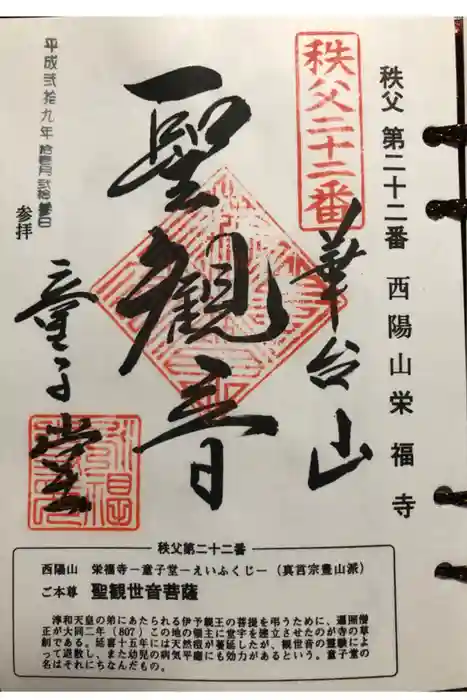 秩父 第二十二番 西陽山栄福寺
秩父二十二番
華台山
聖観音
童子堂
平成弐拾九年 拾壱月 弐拾参日
参拝
秩父第二十二番
西陽山 栄福寺－童子堂－えいふくじ－（真言宗豊山派）
ご本尊 聖観世音菩薩
淳和天皇の弟にあたられる伊予親王の菩提を弔うために、遍照僧
正が大同二年（807）この地の領主に堂宇を建立させたのが寺の草
創である。延喜十五年には天然痘が蔓延したが、観世音の霊験によ
って退散し、また幼児の病気平癒にも効力があるという。童子堂の
名はそれにちなんだもの。